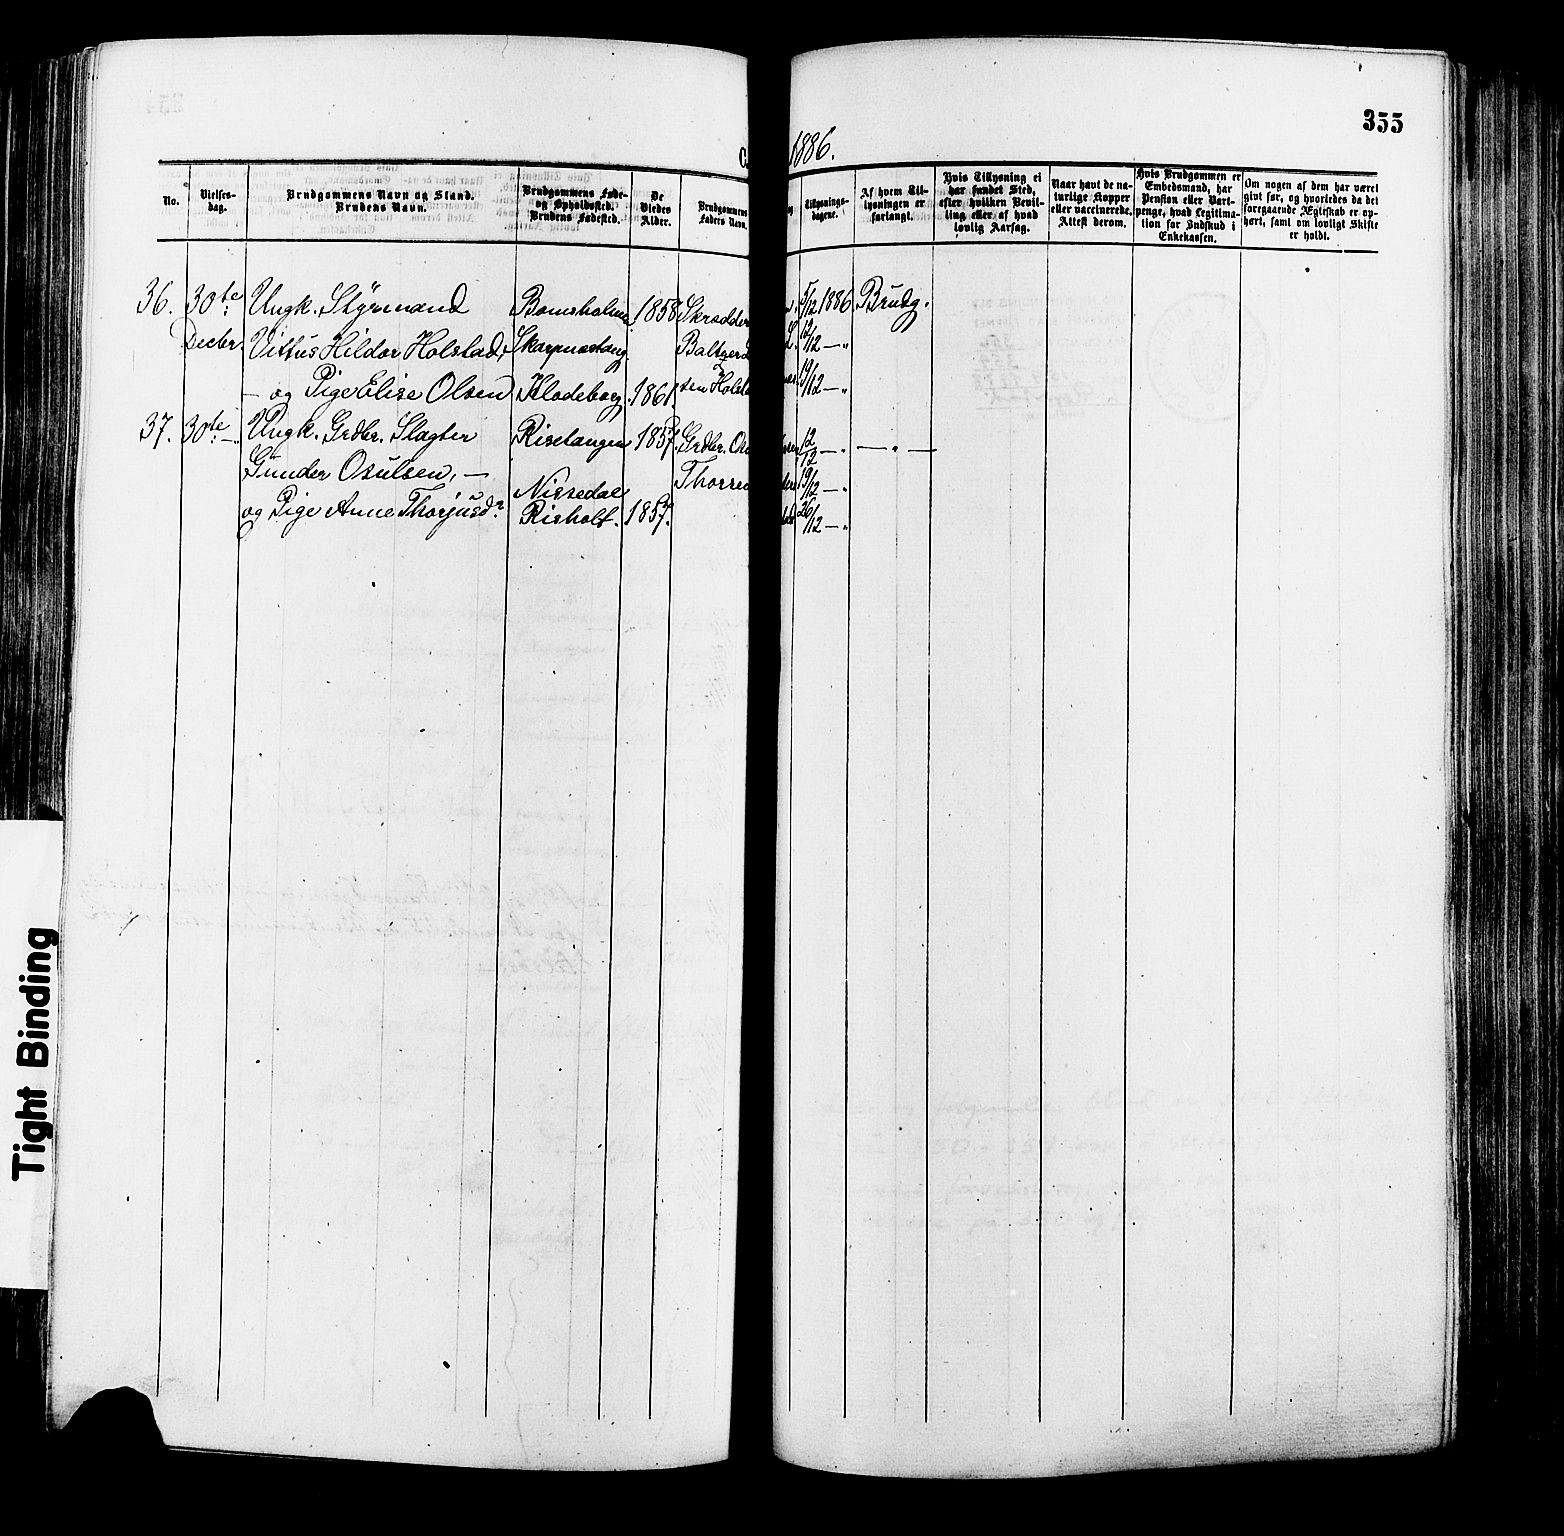 355
1886.
No.
Vielses-
dag.
Brudgommens Navn og Stand.
Brudens Navn.
Brudgommens Føde-
og Opholdssted.
Brudens Fødested.
De
Viedes
Alder.
Brudgommens
Faders Navn.
Tillysnings-
dagene.
Af hvem Til-
lysningen er
forlangt.
Hvis Tillysning ei
har fundet Sted,
efter hvilken Bevil-
ling eller af hvad
lovlig Aarsag.
Naar havt de na-
turlige Kopper
eller vaccinerede.
Attest derom.
Hvis Brudgommen er
Embedsmand, har
Pension eller Vart-
penge, hvad Legitima-
tion for Indskud i
Enkekassen.
Om nogen af dem har været
givt før, og hvorledes da det
foregaaende Ægteskab er op-
hørt, samt om lovligt Skifte
er holdt.
36. 30te Ungk. Styrmand Bomsholmen 1858 Skrædder 5/12 1886 Brudg.
Decbr. Vittus Hildor Holstad, Skarpnæstang. 12/12 — "
— og Pige Elise Olsen Klodeborg. 1861. ten Holst 19/12 — "
37. 30te — Ungk. Grdbr. Slagter Risetangen 1857. Grdbr. Os 12/12 — " — " —
Gunder Osulsen, — Nissedal Thorre 19/12 — "
og Pige Anne Thorjusdr Risholt. 1857. 26/12 — "
Tight Binding